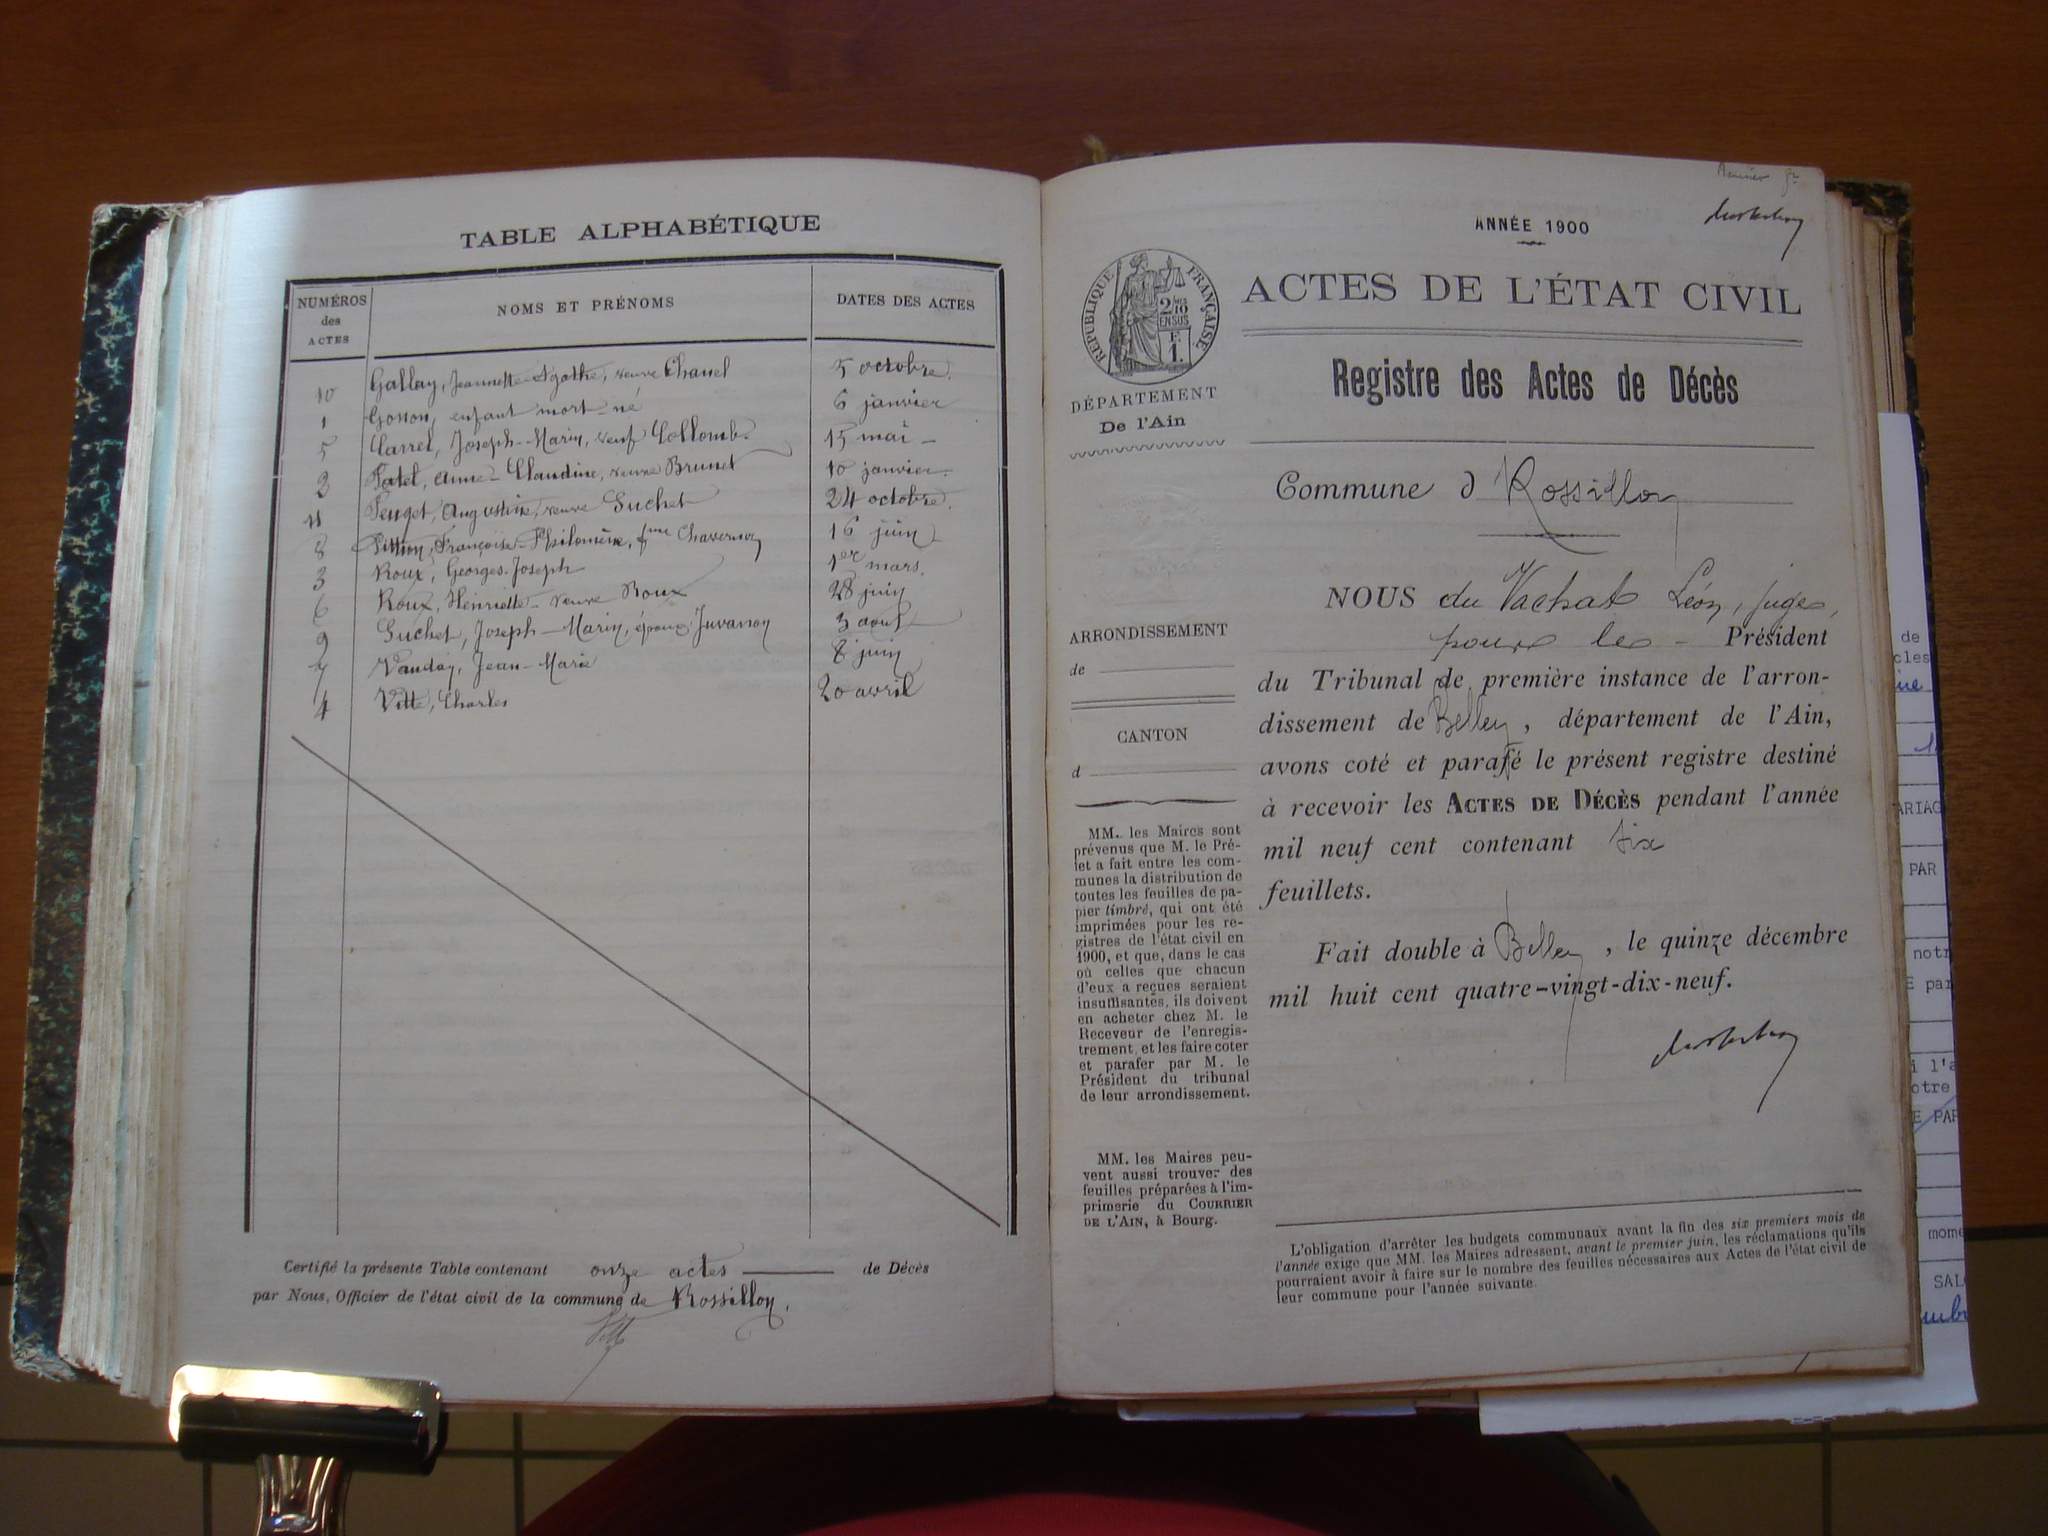 TABLE ALPHABÉTIQUE
NUMÉROS des ACTES
NOMS ET PRÉNOMS
DATES DES ACTES
10 Gallay, Jeannette-Agathe, veuve Chanel 5 octobre
1 Gosson, enfant mort-né 6 janvier
5 Carrel, Joseph-Marin, veuf Collomb 15 mai
2 Patel, Anne-Claudine, veuve Brunet 10 janvier
11 Peuget, Augustine, veuve Suchet 24 octobre
8 Pittion, Françoise-Philomène, fme 16 juin
3 Roux, Georges-Joseph 1er mars
6 Roux, Henriette-veuve Roux 28 juin
9 Suchet, Joseph-Marin, époux Juvanon 3 août
7 Vauday, Jean-Marie 8 juin
4 Vitte, Charles 20 avril
Certifié la présente Table contenant onze actes de Décès
par Nous, Officier de l'état civil de la commune de Rossillon.
ANNÉE 1900
RÉPUBLIQUE FRANÇAISE
2/10 EN SUS
F. 1.
ACTES DE L'ÉTAT CIVIL
DÉPARTEMENT
De l'Ain
Registre des Actes de Décès
Commune d Rossillon
ARRONDISSEMENT
de
CANTON
d
MM. les Maires sont
prévenus que M. le Pré-
fet a fait entre les com-
munes la distribution de
toutes les feuilles de pa-
pier timbré, qui ont été
imprimées pour les re-
gistres de l'état civil en
1900, et que, dans le cas
où celles que chacun
d'eux a reçues seraient
insuffisantes, ils doivent
en acheter chez M. le
Receveur de l'enregis-
trement, et les faire coter
et parafer par M. le
Président du tribunal
de leur arrondissement.
MM. les Maires peu-
vent aussi trouver des
feuilles préparées à l'im-
primerie du COURRIER
DE L'AIN, à Bourg.
NOUS du Vachat Léon, juge,
pour le - Président
du Tribunal de première instance de l'arron-
dissement de Belley, département de l'Ain,
avons coté et parafé le présent registre destiné
à recevoir les ACTES DE DÉCÈS pendant l'année
mil neuf cent contenant six
feuillets.
Fait double à Belley, le quinze décembre
mil huit cent quatre-vingt-dix-neuf.
L'obligation d'arrêter les budgets communaux avant la fin des six premiers mois de
l'année exige que MM. les Maires adressent, avant le premier juin, les réclamations qu'ils
pourraient avoir à faire sur le nombre des feuilles nécessaires aux Actes de l'état civil de
leur commune pour l'année suivante.